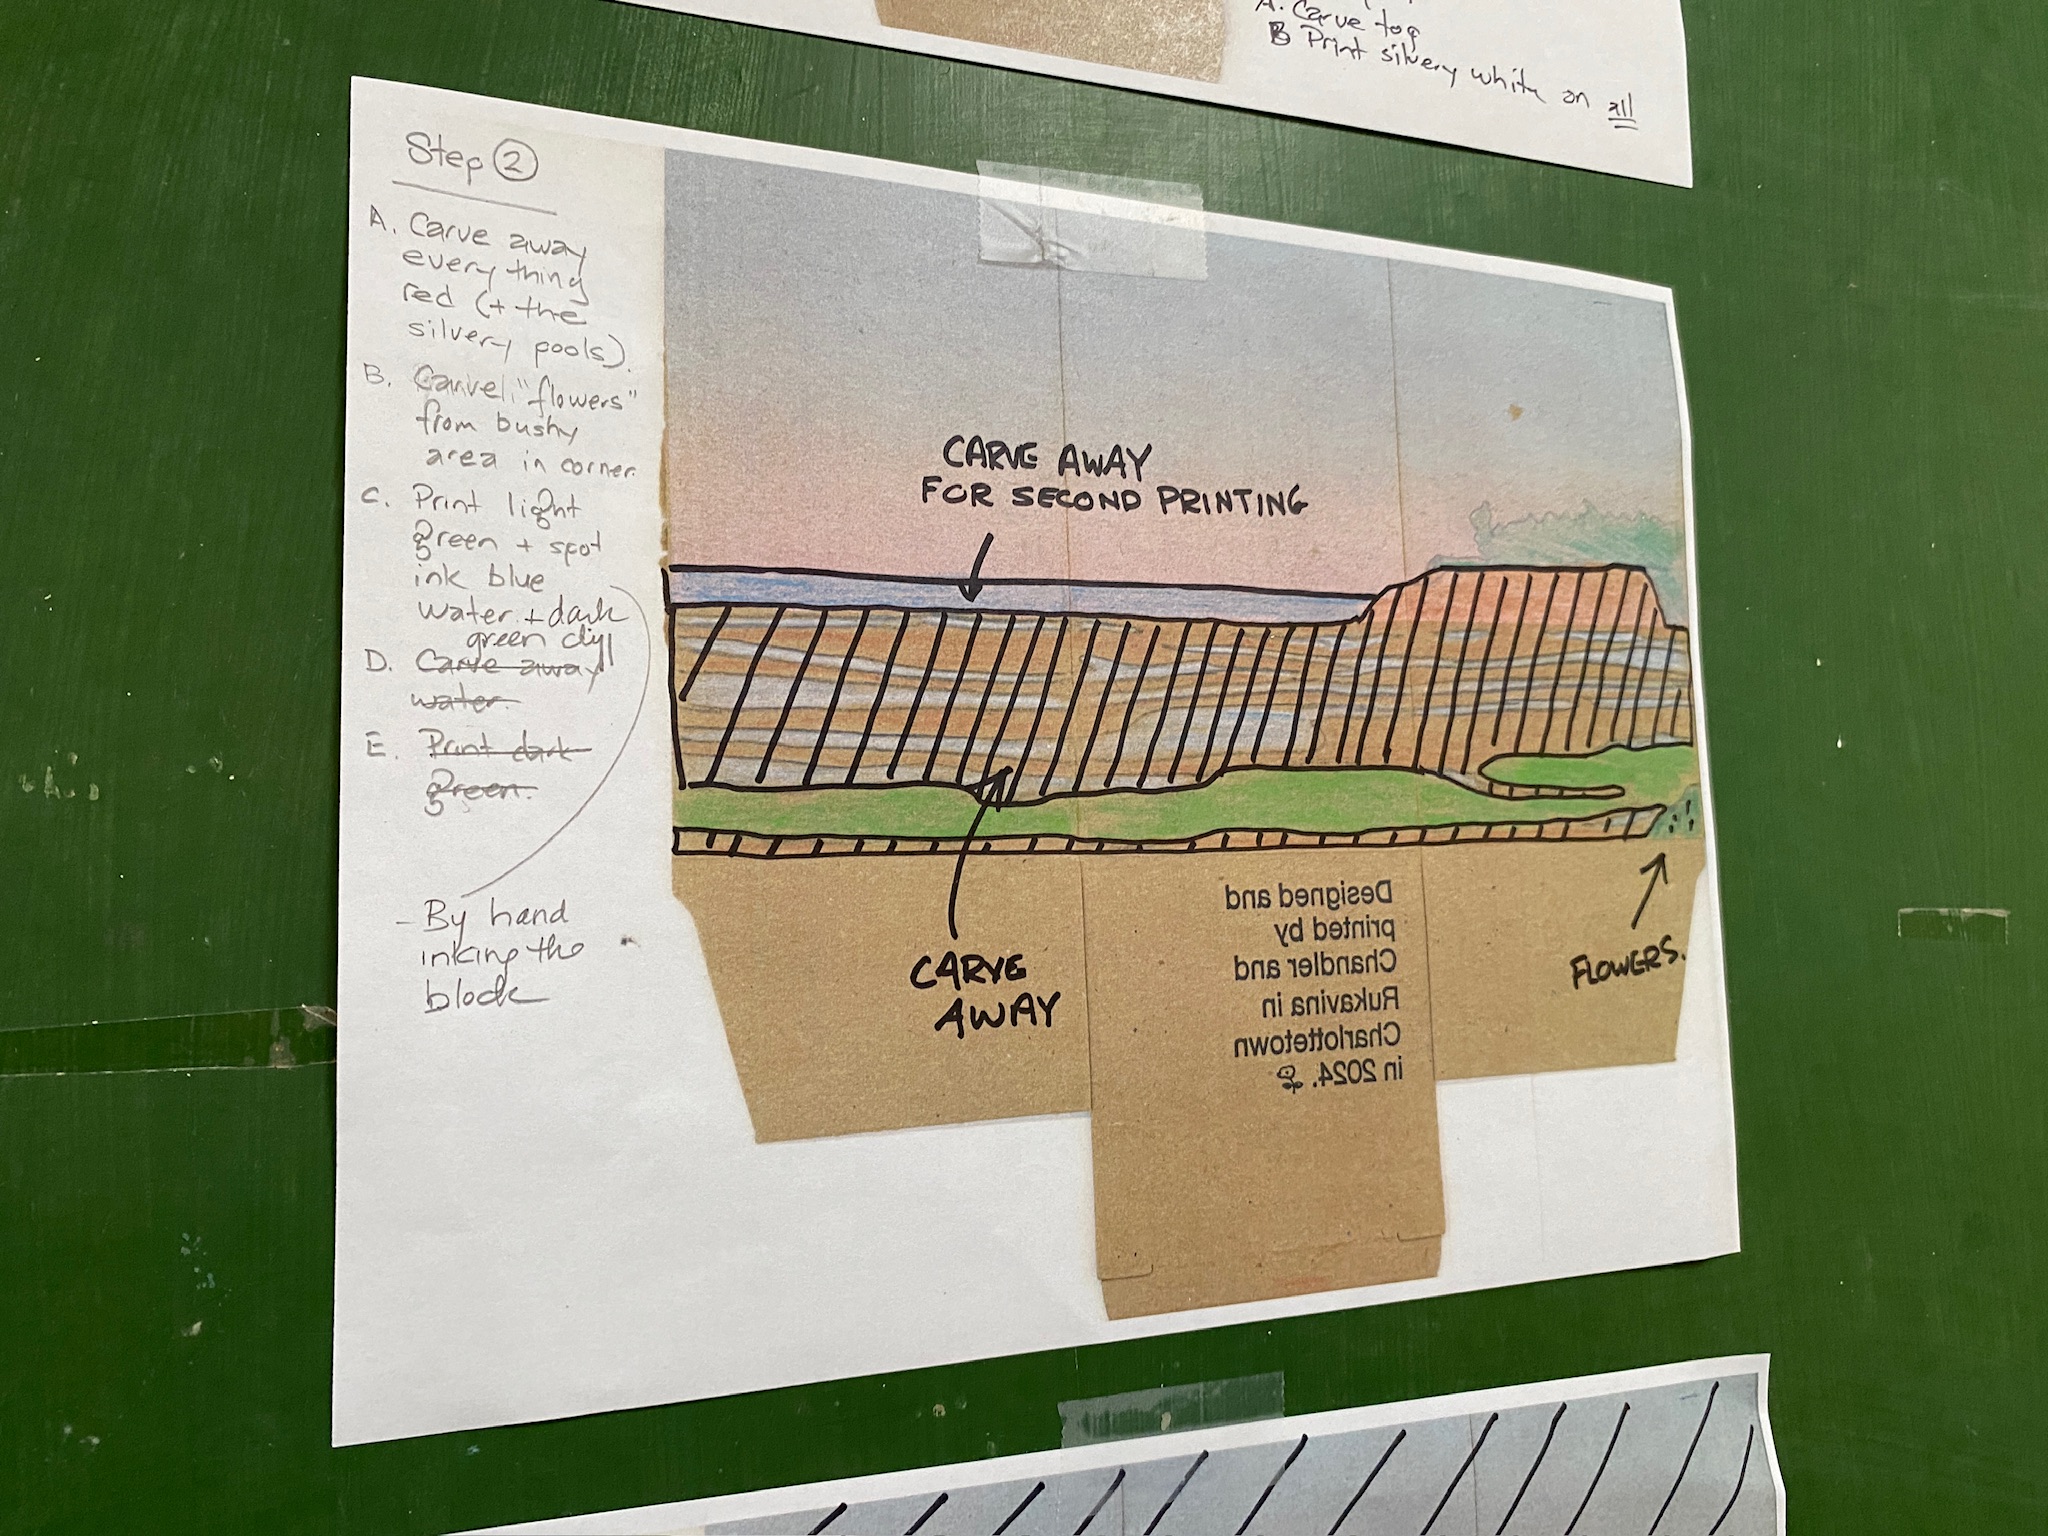 A. Carve top
B Print silvery white on all
Step 2
A. Carve away
everything
red (+ the
silvery pools).
B. Carve "flowers"
from bushy
area in corner.
C. Print light
green + spot
ink blue
water + dark
green
D. Carve away
water.
E. Print dark
green.
- By hand
inking the
block
CARVE AWAY
FOR SECOND PRINTING
CARVE
AWAY
FLOWERS.
Designed and
printed by
Chandler and
Rukavina in
Charlottetown
in 2024.